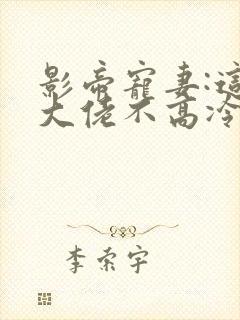 影帝寵妻:這
大佬不高冷
李索宇